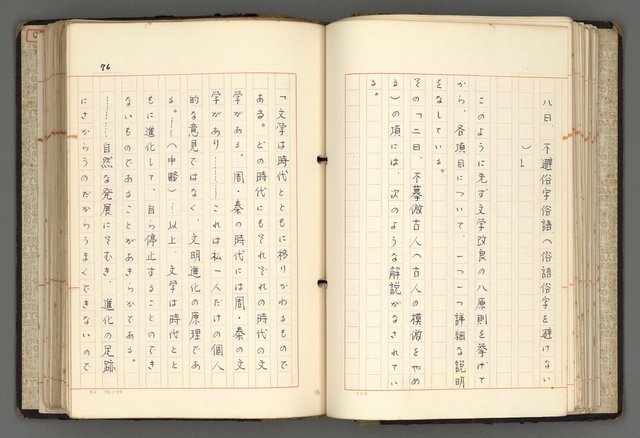 八曰、不避俗字俗語(俗語俗字を避けない
)」
このように先ず文学改良の八原則を挙げて
から、各項目について、一つ一つ詳細な説明
をなしている。
その「二曰、不摹倣古人(古人の模倣をやめ
る)の項には、次のような解説がなされてい
る。
76
「文学は時代とともに移りかわるもので
ある。どの時代にもそれぞれの時代の文
学がある。周・秦の時代には周・秦の文
学があり………これは私一人だけの個人
的な意見ではなく、文明進化の原理であ
る。…(中略)…以上、文学は時代とと
もに進化して、自ら停止することのでき
ないものであることがあきらかである。
………自然な発展にそむき、進化の足跡
にさからうのだからうまくできないので